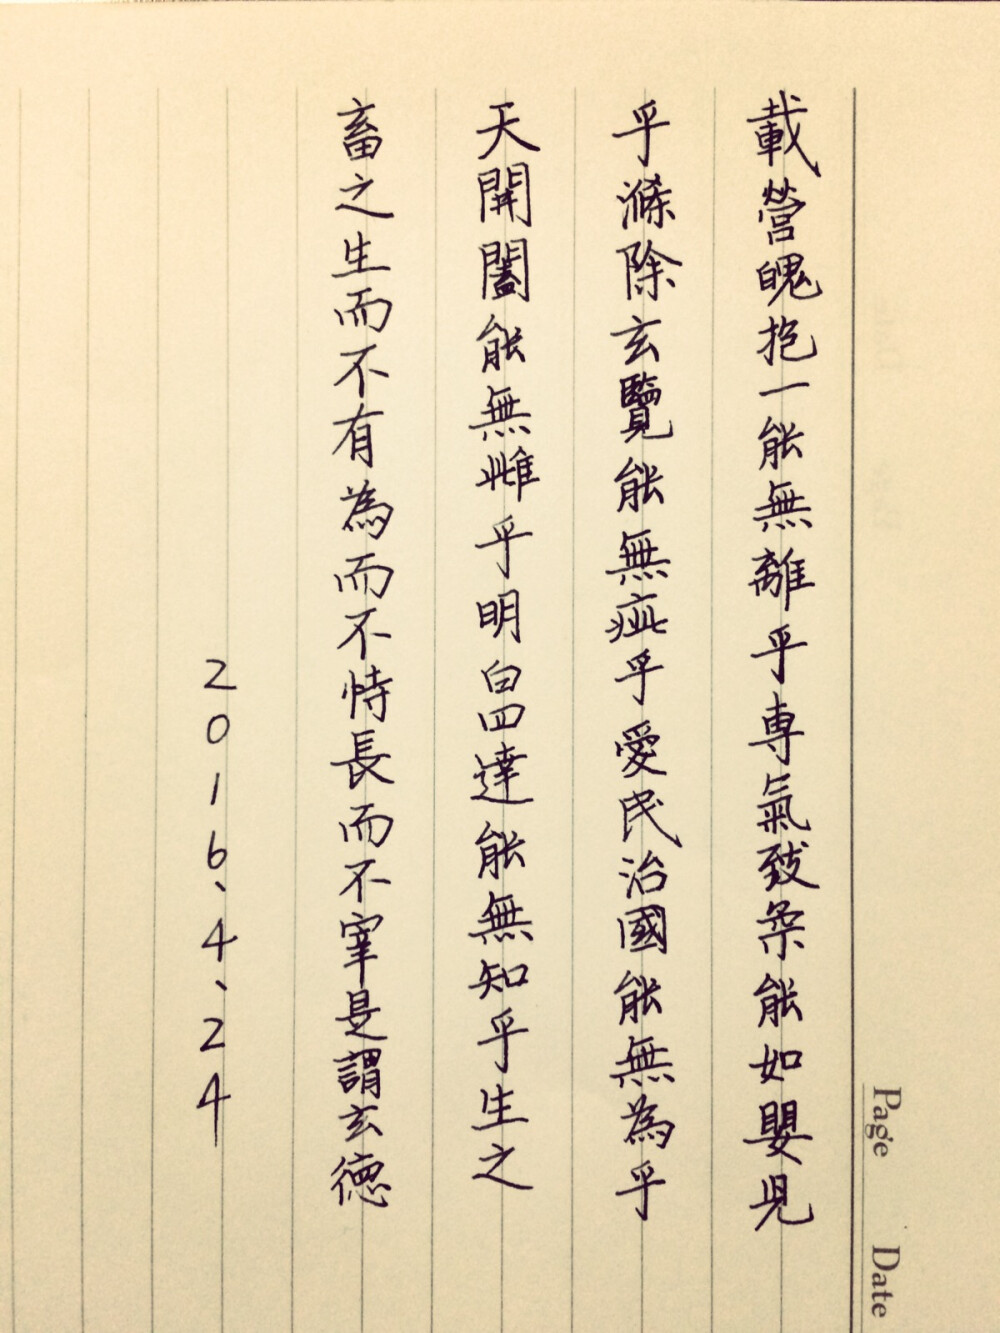 載營魄抱一能無離乎専氣致柔能如嬰児
乎滌除玄覽能無疵乎愛民治國能無為乎
天開闔能無雌乎明白四達能無知乎生之
畜之生而不有為而不恃長而不宰是謂玄德
2016.4.24
Page
Date